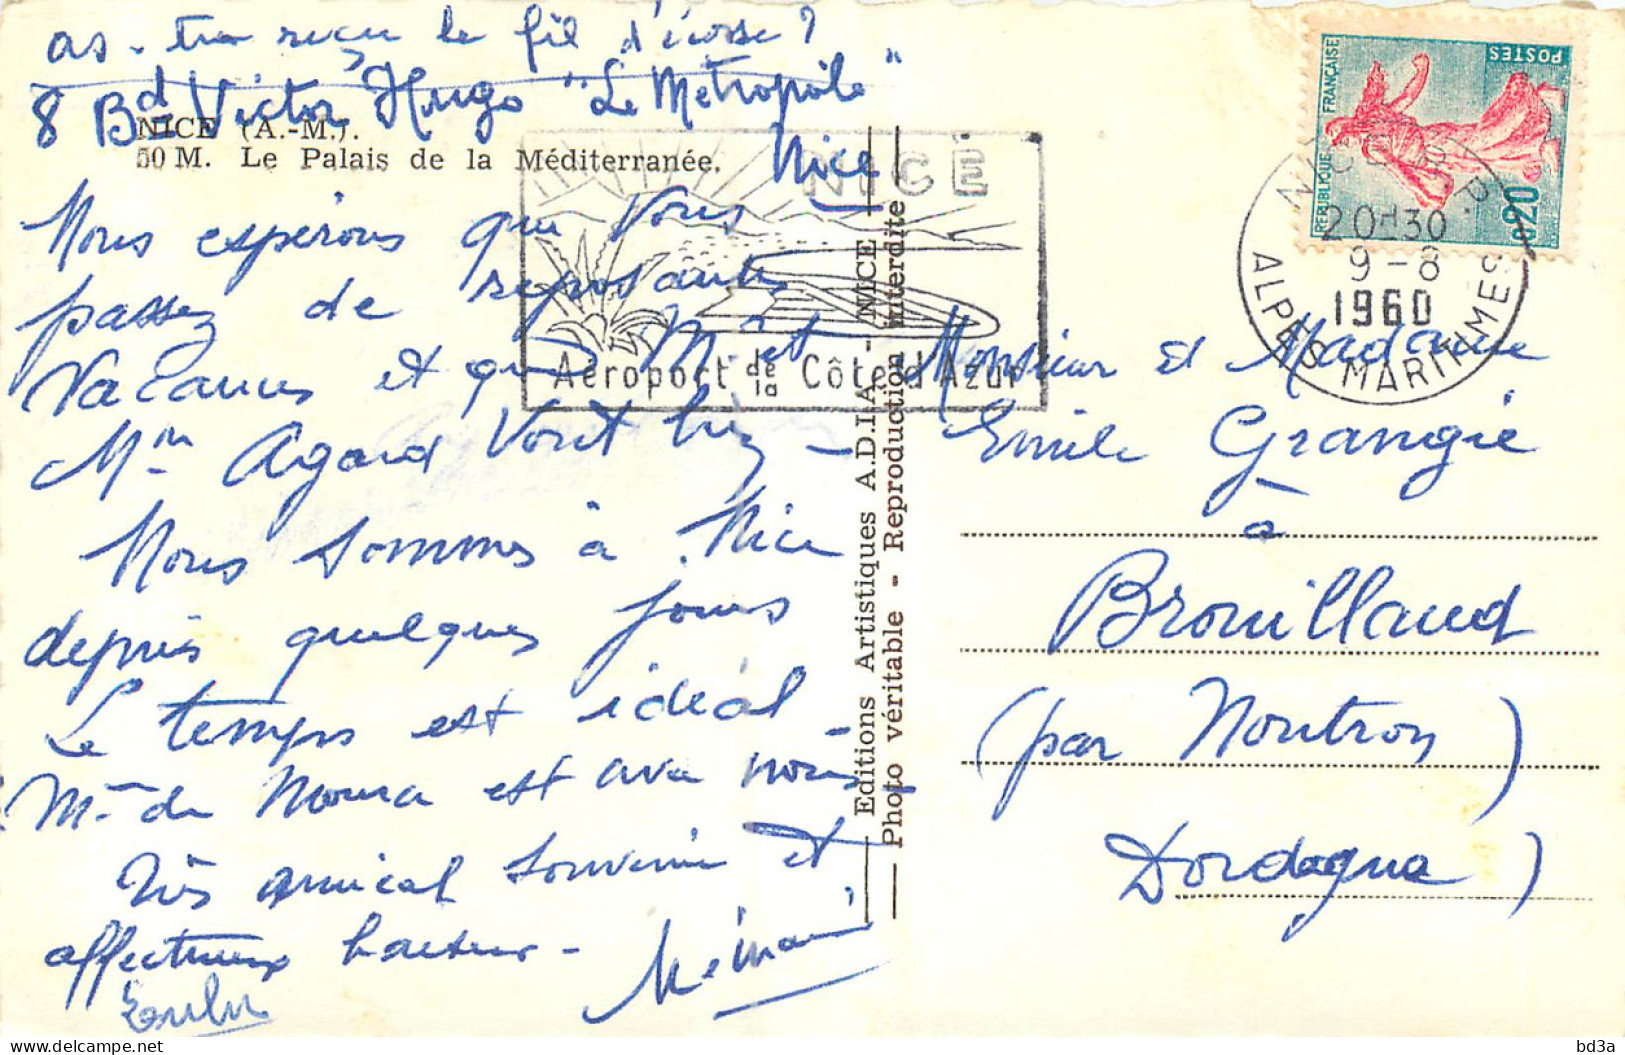 as-tu reçu le fil d'écosse ?
8 Bd Victor Hugo "Le Métropole"
Nice
NICE (A.-M.).
50 M. Le Palais de la Méditerranée.
Nous espérons que vous
passez de reposantes
vacances et que M. et
Mme Agard vont bien -
Nous sommes à Nice
depuis quelques jours
Le temps est idéal -
Mme de Moura est avec nous -
Très amical souvenir et
affectueux baisers -
Editions Artistiques A.D.I.A. - NICE
Photo véritable - Reproduction interdite
NICE
Aéroport de la Côte d'Azur
REPUBLIQUE FRANÇAISE
POSTES
0,20
NICE R.P.
20H30
9-8
1960
ALPES MARITIMES
Monsieur et Madame
Emile Grangié
à
Brouillaud
(par Nontron)
Dordogne)
bd3a